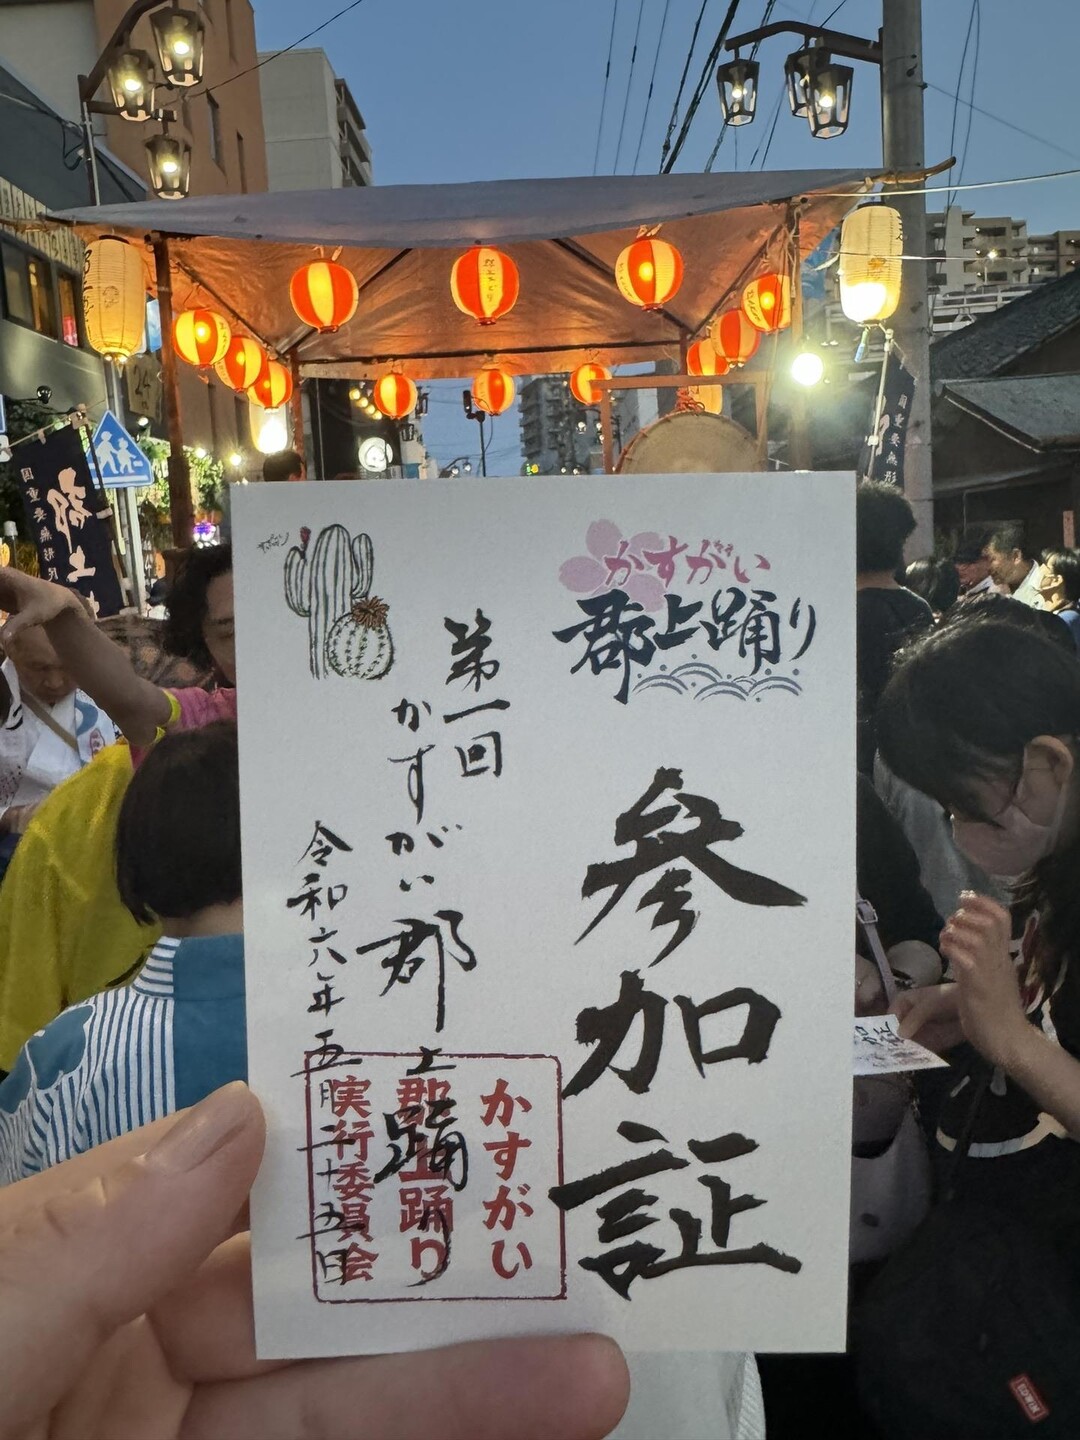 かすがい
郡上踊り
参加証
第一回
かすがい郡上踊り
令和六年五月二十五日
かすがい
郡上踊り
実行委員会
サボテン
郡上
国重要無形民
国重要無形
EDWIN